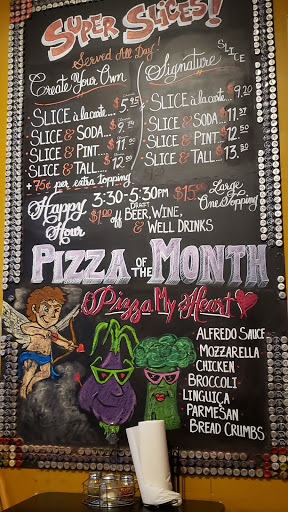 SUPER SLICES!
Served All Day!
Create Your Own
SLICE à la carte... $5.95
SLICE & SODA...
SLICE & PINT... $11.00
SLICE & TALL... $12.00
+75¢ per extra topping
Signature SLICE
SLICE à la carte... $9.20
SLICE & SODA... $11.37
SLICE & PINT... $12.50
SLICE & TALL... $13.50
Happy Hour
3:30-5:30PM
$1.00 off DRAFT BEER, WINE,
& WELL DRINKS
$15.00 Large One Topping
PIZZA OF THE MONTH
Pizza My Heart
ALFREDO SAUCE
MOZZARELLA
CHICKEN
BROCCOLI
LINGUIÇA
PARMESAN
BREAD CRUMBS